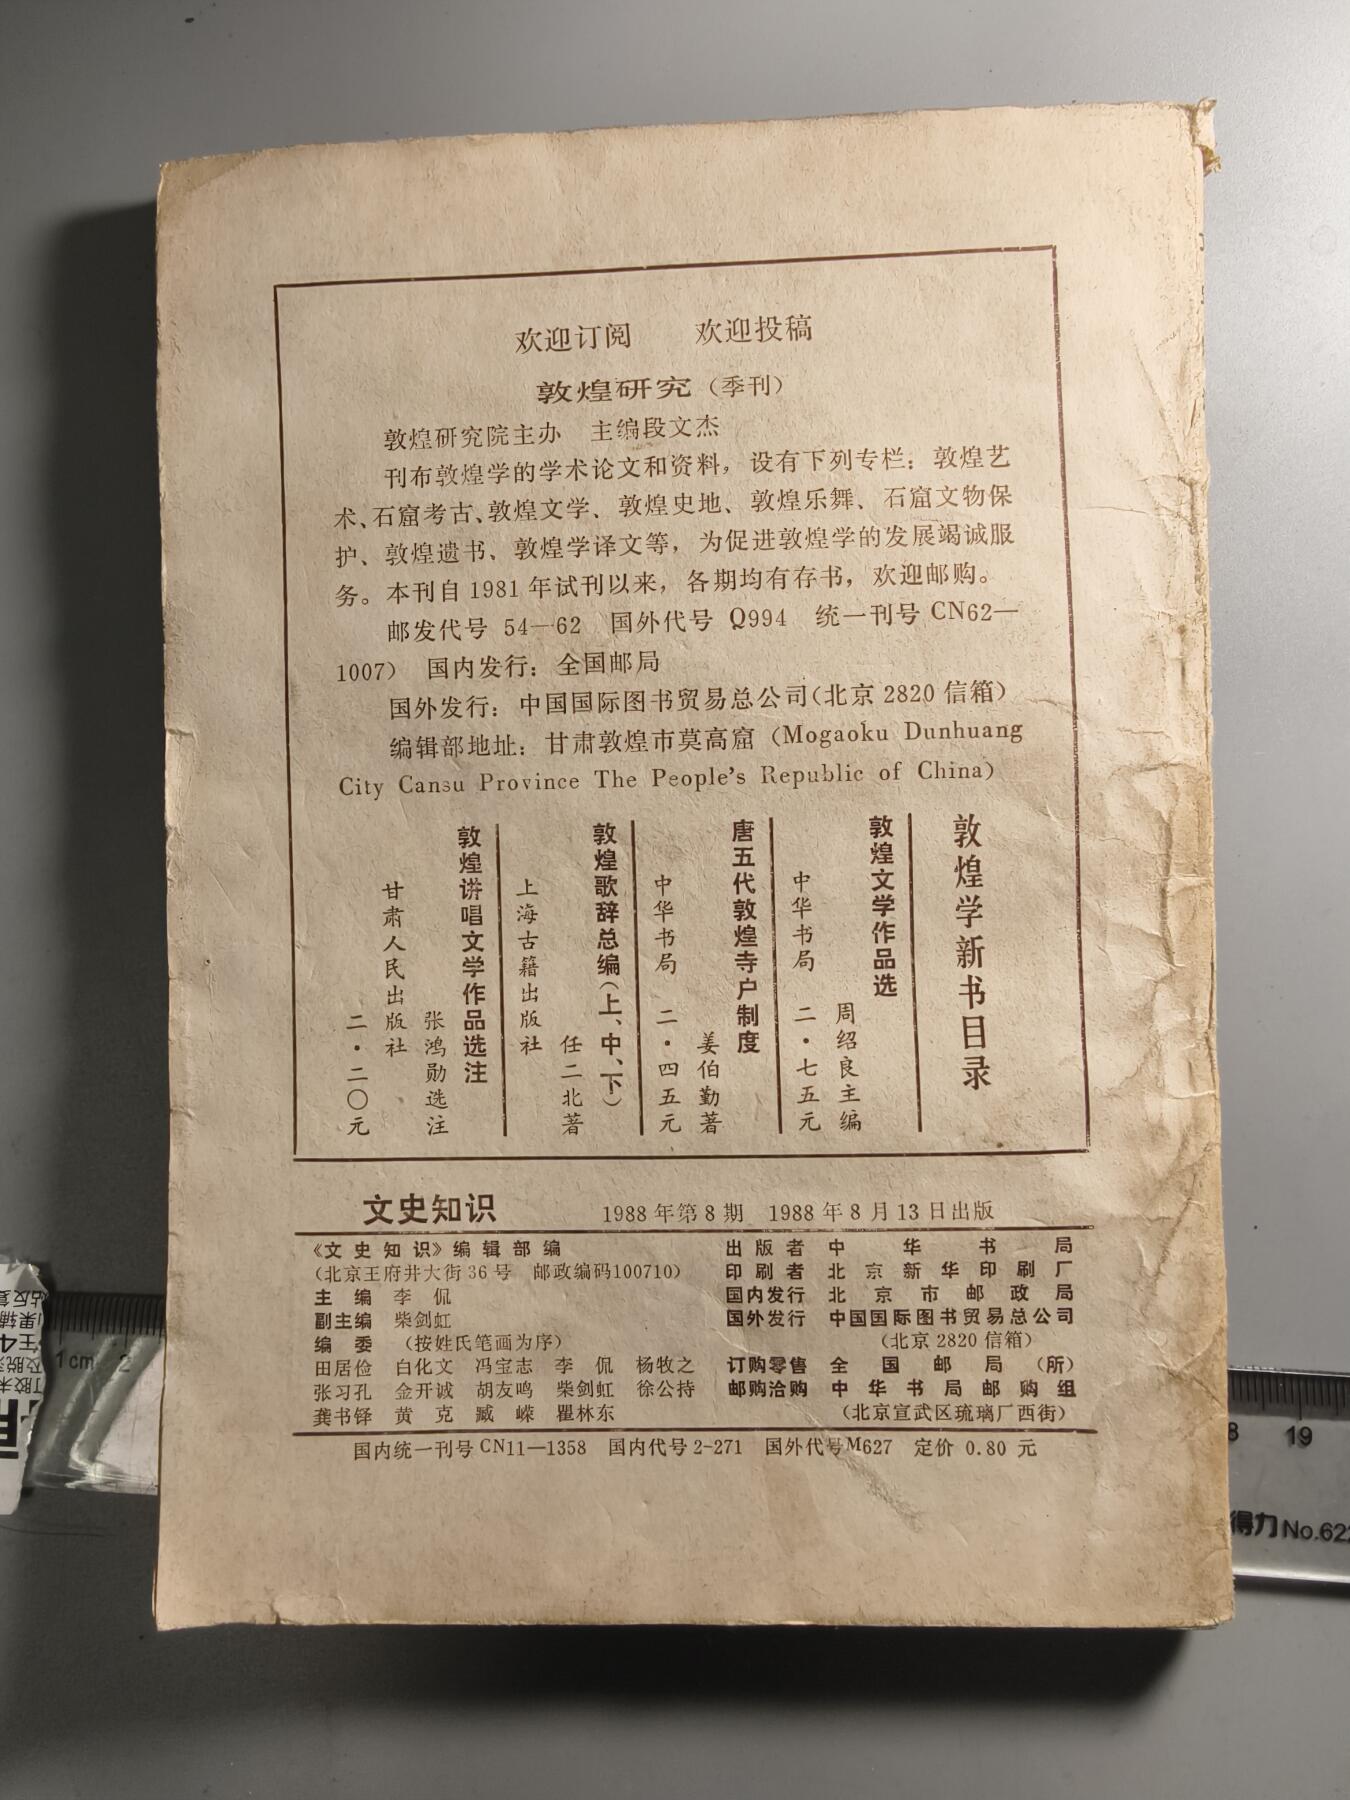 欢迎订阅　　欢迎投稿
敦煌研究（季刊）
敦煌研究院主办　主编段文杰
刊布敦煌学的学术论文和资料，设有下列专栏：敦煌艺
术、石窟考古、敦煌文学、敦煌史地、敦煌乐舞、石窟文物保
护、敦煌遗书、敦煌学译文等，为促进敦煌学的发展竭诚服
务。本刊自1981年试刊以来，各期均有存书，欢迎邮购。
邮发代号 54—62　国外代号 Q994　统一刊号CN62—
1007）　国内发行：全国邮局
国外发行：中国国际图书贸易总公司（北京2820信箱）
编辑部地址：甘肃敦煌市莫高窟（Mogaoku Dunhuang
City Cansu Province The People's Republic of China）
敦煌学新书目录
敦煌文学作品选
周绍良主编
中华书局　二·七五元
唐五代敦煌寺户制度
姜伯勤著
中华书局　二·四五元
敦煌歌辞总编（上、中、下）
任二北著
上海古籍出版社
敦煌讲唱文学作品选注
张鸿勋选注
甘肃人民出版社
二·二〇元
文史知识　1988年第8期　1988年8月13日出版
《文史知识》编辑部编
（北京王府井大街36号　邮政编码100710）
主　编　李　侃
副主编　柴剑虹
编　委　（按姓氏笔画为序）
田居俭　白化文　冯宝志　李　侃　杨牧之
张习孔　金开诚　胡友鸣　柴剑虹　徐公持
龚书铎　黄　克　臧　嵘　瞿林东
出版者　中华书局
印刷者　北京新华印刷厂
国内发行　北京市邮政局
国外发行　中国国际图书贸易总公司
（北京2820信箱）
订购零售　全国邮局（所）
邮购洽购　中华书局邮购组
（北京宣武区琉璃厂西街）
国内统一刊号CN11—1358　国内代号2-271　国外代号M627　定价 0.80 元
1cm 2
8 19
得力 No.622